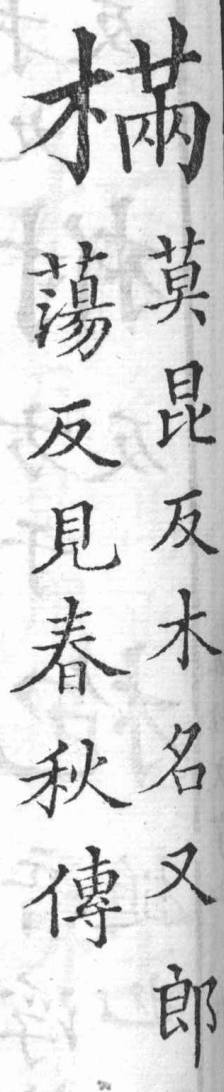 樠
莫昆反木名又郎
蕩反見春秋傳